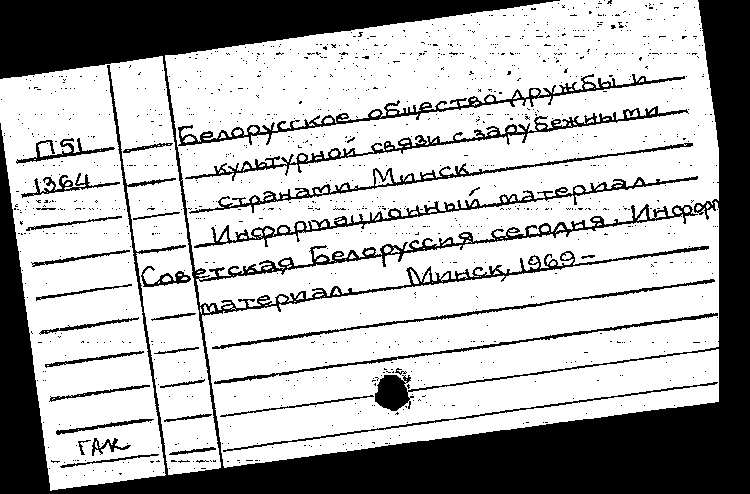 П51
1364
Белорусское общество дружбы и
культурной связи с зарубежными
странами. Минск.
Информационный материал.
Советская Белоруссия сегодня. Информ
материал. Минск, 1969-
ГАК